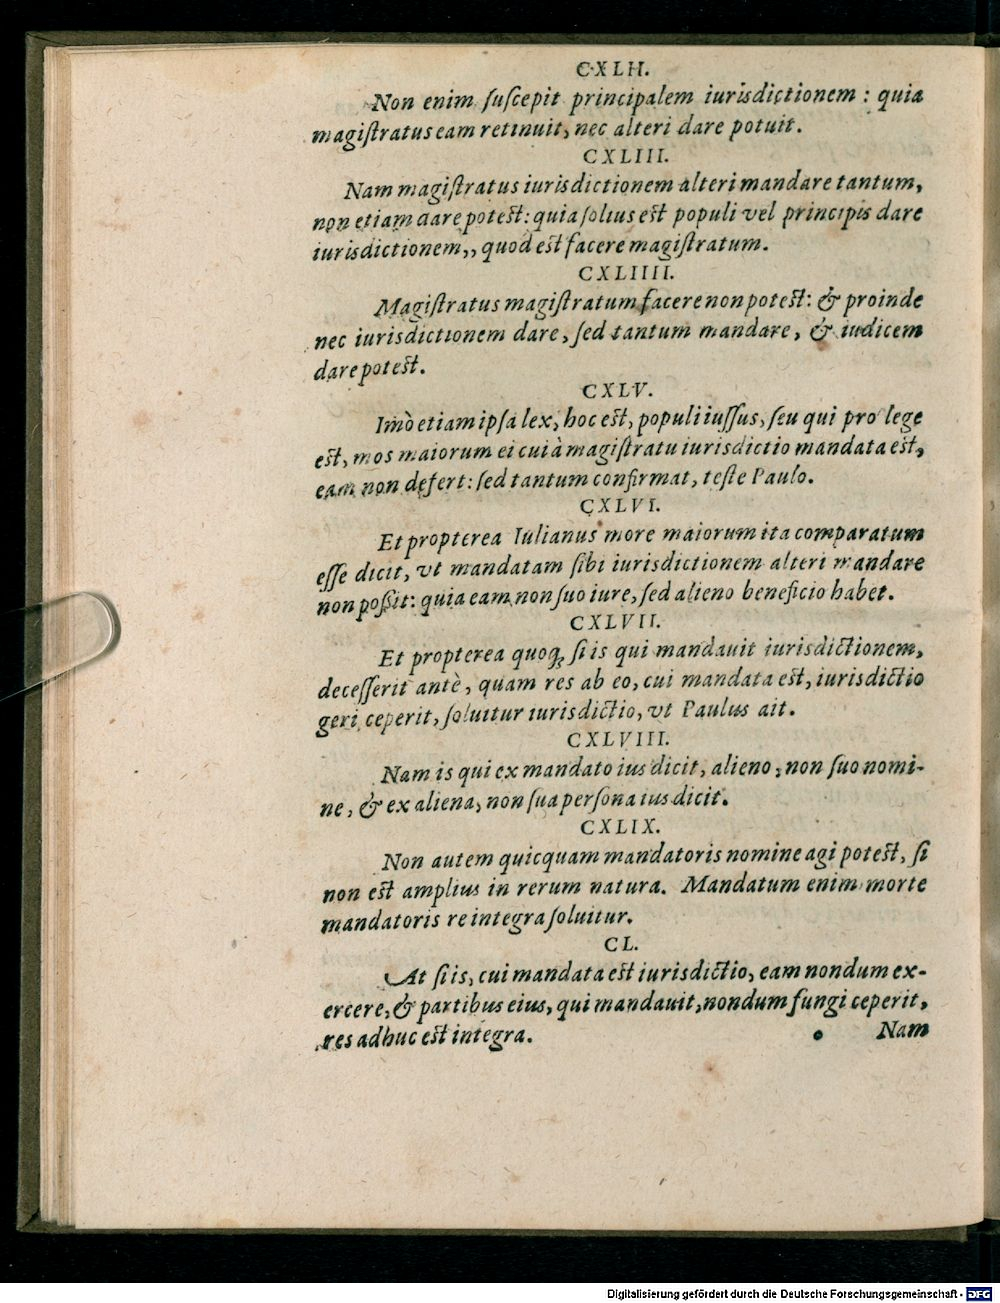 CXLII.
Non enim ſuſcepit principalem iurisdictionem : quia
magiſtratus eam retinuit, nec alteri dare potuit.
CXLIII.
Nam magiſtratus iurisdictionem alteri mandare tantum,
non etiam dare potest: quia ſolius est populi vel principis dare
iurisdictionem,, quod est facere magiſtratum.
CXLIIII.
Magiſtratus magiſtratum facere non potest: & proinde
nec iurisdictionem dare, ſed tantum mandare, & iudicem
dare potest.
CXLV.
Imò etiam ipſa lex, hoc est, populi iuſſus, ſeu qui pro lege
est, mos maiorum ei cui à magiſtratu iurisdictio mandata est,
eam non defert: ſed tantum confirmat, teſte Paulo.
CXLVI.
Et propterea Iulianus more maiorum ita comparatum
eſſe dicit, vt mandatam ſibi iurisdictionem alteri mandare
non poßit: quia eam non ſuo iure, ſed alieno beneficio habet.
CXLVII.
Et propterea quoq; ſi is qui mandauit iurisdictionem,
deceſſerit antè, quam res ab eo, cui mandata est, iurisdictio
geri ceperit, ſoluitur iurisdictio, vt Paulus ait.
CXLVIII.
Nam is qui ex mandato ius dicit, alieno, non ſuo nomi-
ne, & ex aliena, non ſua perſona ius dicit.
CXLIX.
Non autem quicquam mandatoris nomine agi potest, ſi
non est amplius in rerum natura. Mandatum enim morte
mandatoris re integra ſoluitur.
CL.
At ſi is, cui mandata est iurisdictio, eam nondum ex-
ercere, & partibus eius, qui mandauit, nondum fungi ceperit,
res adhuc est integra.
Nam
Digitalisierung gefördert durch die Deutsche Forschungsgemeinschaft - DFG